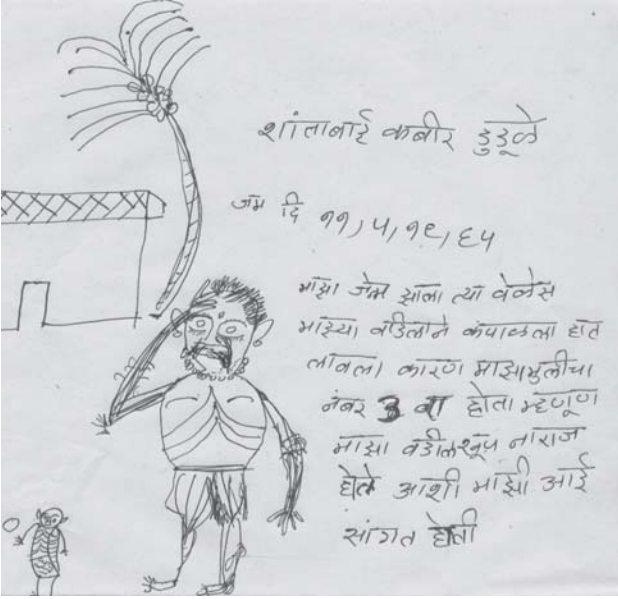 शांताबाई कबीर डुडूळे
जंम दि ११,५,१९,६५
माझा जंम झाला त्या वेळेस
माझ्या वडिलाने कपाळला हात
लावला कारण माझा मुलीचा
नंबर 3 रा होता म्हणूण
माझा वडील खूप नाराज
होते आशी माझी आई
सांगत होती